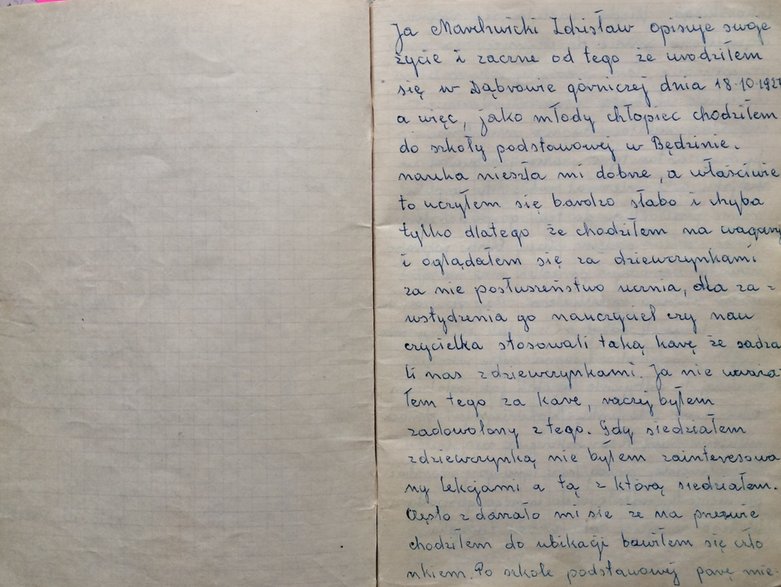 Ja Marchwicki Zdzisław opisuje swoje
życie i zaczne od tego że urodziłem
się w Dąbrowie górniczej dnia 18-10-1927
a więc, jako młody chłopiec chodziłem
do szkoły podstawowej w Będzinie.
nauka nieszła mi dobne, a właściwie
to uczyłem się bardzo słabo i chyba
tylko dlatego że chodziłem na wagary
i oglądałem się za dziewczynkami
za nie posłuszeństwo ucznia, dla za-
wstydzenia go nauczyciel czy nau
czycielka stosowali taką karę że sadza
li nas zdziewczynkami. Ja nie uważa
łem tego za karę, raczej byłem
zadowolony ztego. Gdy siedziałem
zdziewczynką nie byłem zainteresowa
ny lekcjami a tą z którą siedziałem.
Często zdarzało mi sie że na przerwie
chodziłem do ubikacji bawiłem się czło
nkiem. Po szkole podstawowej parę mie-